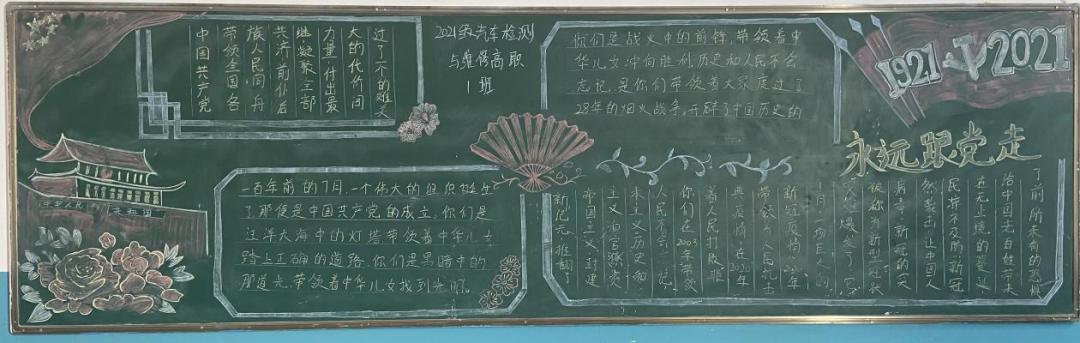 过了一个的难关
大的代价问
力量,付出最
继凝聚全部
共济前仆后
族人民同舟
带领全国各
中国共产党
2021级汽车检测
与维修高职
1班
你们是战火中的前锋,带领着中
华儿女冲向胜利历史和人民不会
忘记,是你们带领着大家度过了
28年的烟火战争,开辟了中国历史的
1921 2021
永远跟党走
一百年前的7月,一个伟大的组织诞生
了,那便是中国共产党的成立。你们是
汪洋大海中的灯塔带领着中华儿女
踏上正确的道路,你们是黑暗中的
那道光,带领着中华儿女找到光明。
中华人民 共和国
了前所未有的恐慌
治中国老百姓带来
近无止境的蔓延
民猝不及防新冠
然袭击,让中国人
病毒,新冠的突
被称为新型冠状
新冠疫情
带领
典疫情,在2020年
着人民打败非
你们在2003年带领
人民不会忘记。
本主义历史和
主义和官僚资
帝国主义、封建
新纪元,推翻了